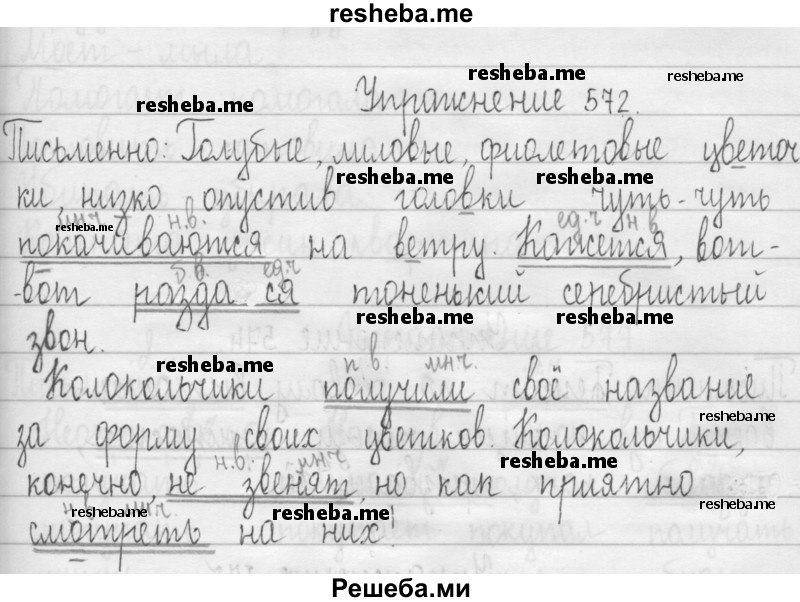 resheba.me
resheba.me resheba.me
resheba.me Упражнение 572.
Письменно: Голубые, лиловые, фиолетовые цветоч
resheba.me resheba.me
ки низко опустив головки чуть-чуть
мн.ч н.в. ед.ч н в
resheba.me
покачиваются на ветру. Кажется, вот-
б.в. ед.ч
-вот разда ся тоненький серебристый
resheba.me resheba.me
звон.
resheba.me п в мн.ч.
Колокольчики получили своё название
resheba.me
за форму своих цветков. Колокольчики,
н.в. мн.ч resheba.me
конечно, не звенят, но как приятно
resheba.me мн.ч. resheba.me resheba.me
смотреть на них!
Решеба.ми